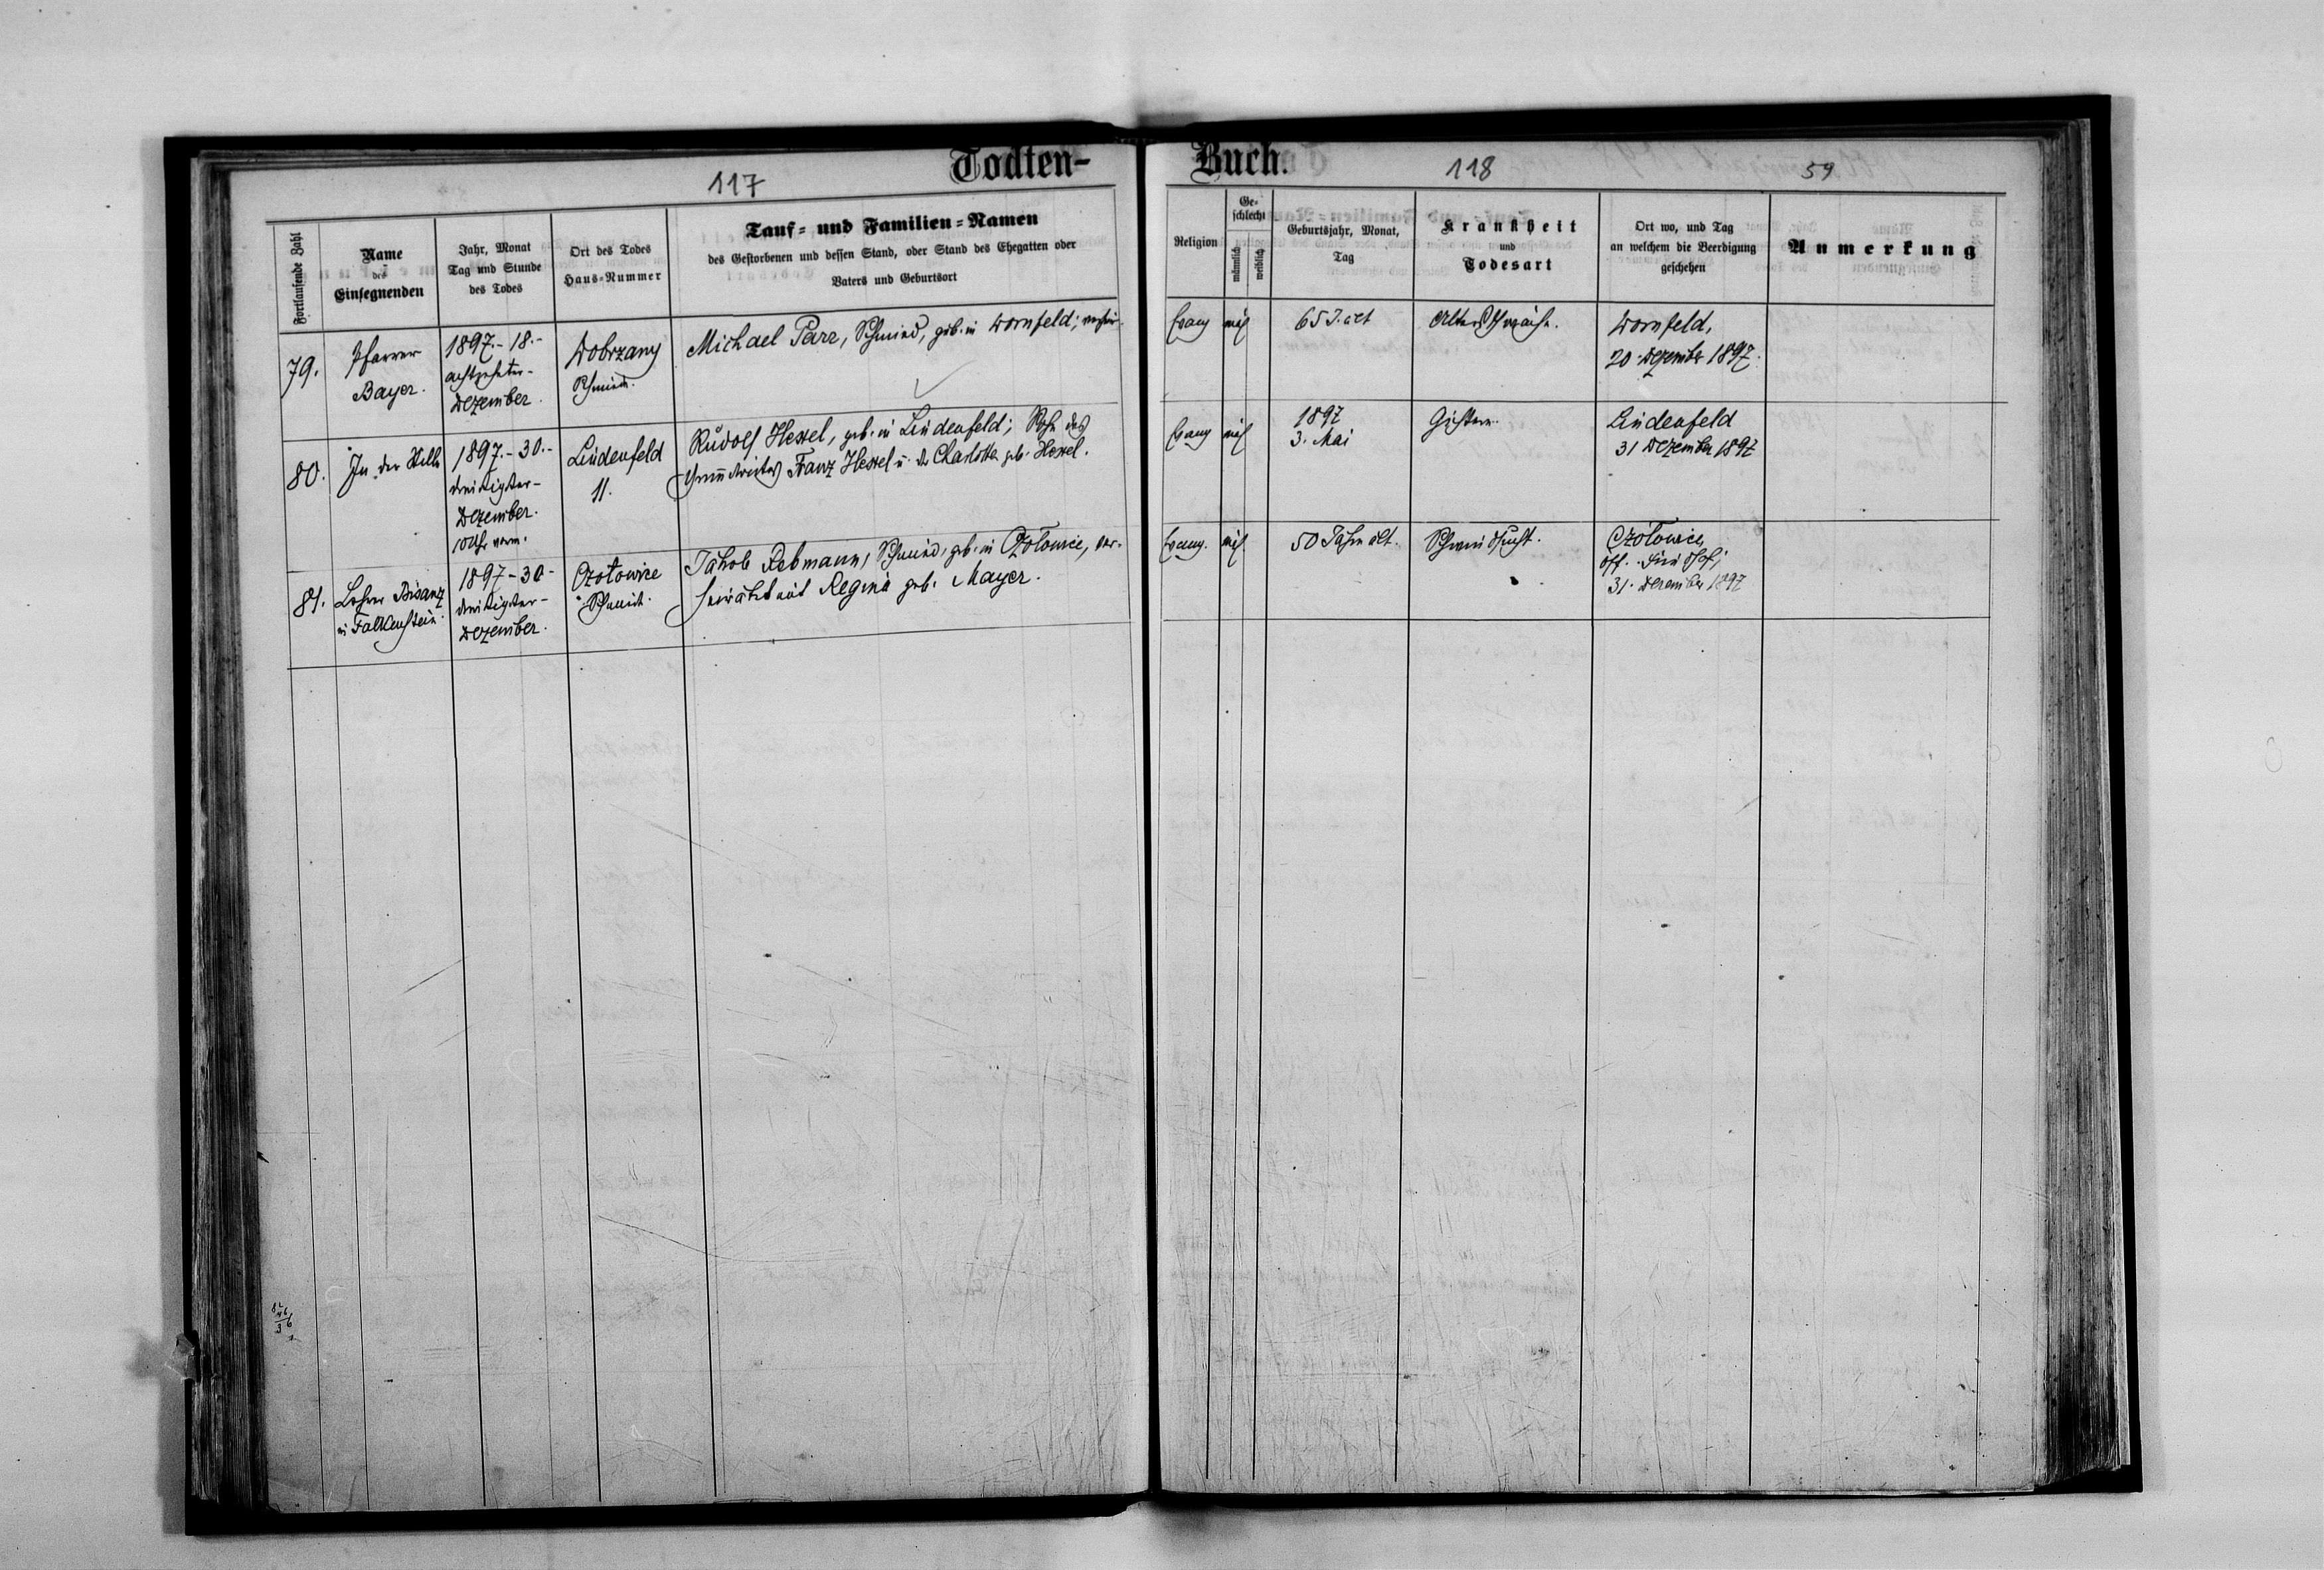 Todten-
Buch.
117
118
59
Fortlaufende Zahl
Name
des
Einsegnenden
Jahr, Monat
Tag und Stunde
des Todes
Ort des Todes
Haus-Nummer
Tauf- und Familien-Namen
des Gestorbenen und dessen Stand, oder Stand des Ehegatten oder
Vaters und Geburtsort
Religion
Ge-
schlecht
männlich
weiblich
Geburtsjahr, Monat,
Tag
Krankheit
und
Todesart
Ort wo, und Tag
an welchem die Beerdigung
geschehen
Anmerkung
79.
Pfarrer
Bayer.
1897.-18.-
achtzehnter-
Dezember.
Dobrzany
Schmied.
Michael Parr, Schmied, geb. in Dornfeld;
Evang
65 J. alt
Altersschwäche.
Dornfeld,
20. Dezember 1897.
80.
In der Stille
1897.-30.-
dreißigster-
Dezember.
10 Uhr vorm.
Lindenfeld
11.
Rudolf Hessel, geb. in Lindenfeld; Sohn des
Grundwirtes Franz Hessel u. der Charlotte geb. Hessel.
Evang
1897
3. Mai
Lindenfeld
31 Dezember 1897
81.
Lehrer Bisanz
in Falkenstein.
1897-30-
dreißigster-
Dezember.
Czołowice
Schmied.
Jakob Rebmann, Schmied, geb. in Czołowice, ver-
heirathet mit Regina geb. Mayer.
Evang.
50 Jahre alt.
Schwindsucht.
Czołowice,
öff. Friedhof;
31. Dezember 1897